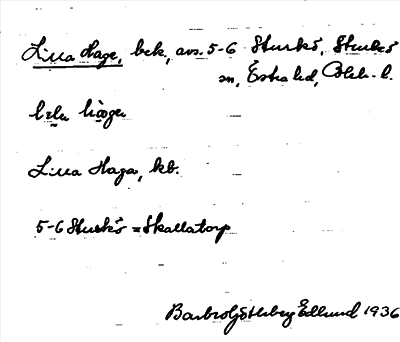 Lilla Hage, bek, avs. 5-6 Sturkö, Sturkö
sn, Östra hd, Blek. l.
Lilla Haga, kb.
5-6 Sturkö = Skallatorp
Barbro Götlberg Edlund 1936